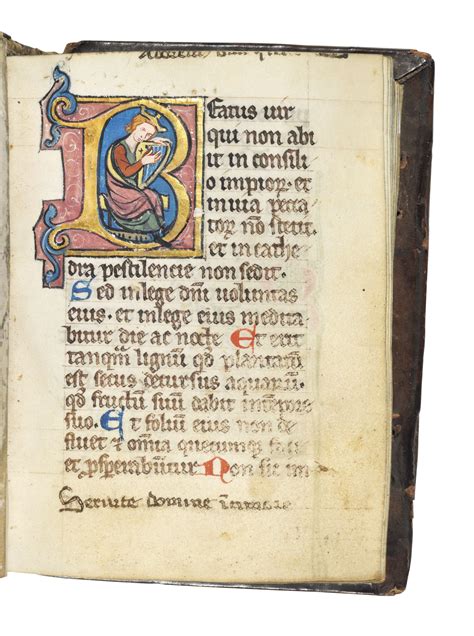 Beatus uir
qui non abi
it in consili
o impior. et
in uia pecca
torꝝ nō stetit.
et in cathe
dra pestilencie non sedit.
Sed in lege dn̄i uoluntas
eius. et in lege eius medita
bitur die ac nocte Et erit
tanqm̄ lignū qd plantatū
est secus decursus aquarū.
qd fructū suū dabit in tempore
suo. Et foliū eius non de
fluet & omnia quecumque faci
et prosperabūtur Non sic im
Seruite domine in timore